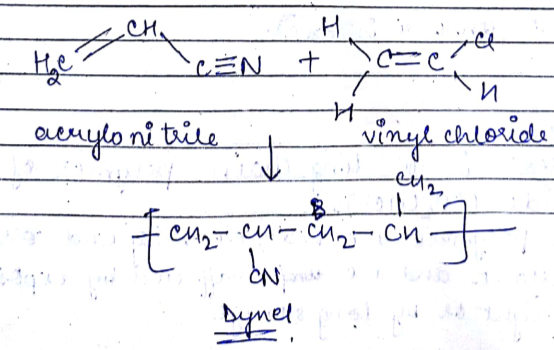 H₂C=CH-C≡N + H H C=C Cl H
acrylonitrile vinyl chloride
↓
CH₂
[CH₂-CH-CH₂-CH]
CN
Dynel